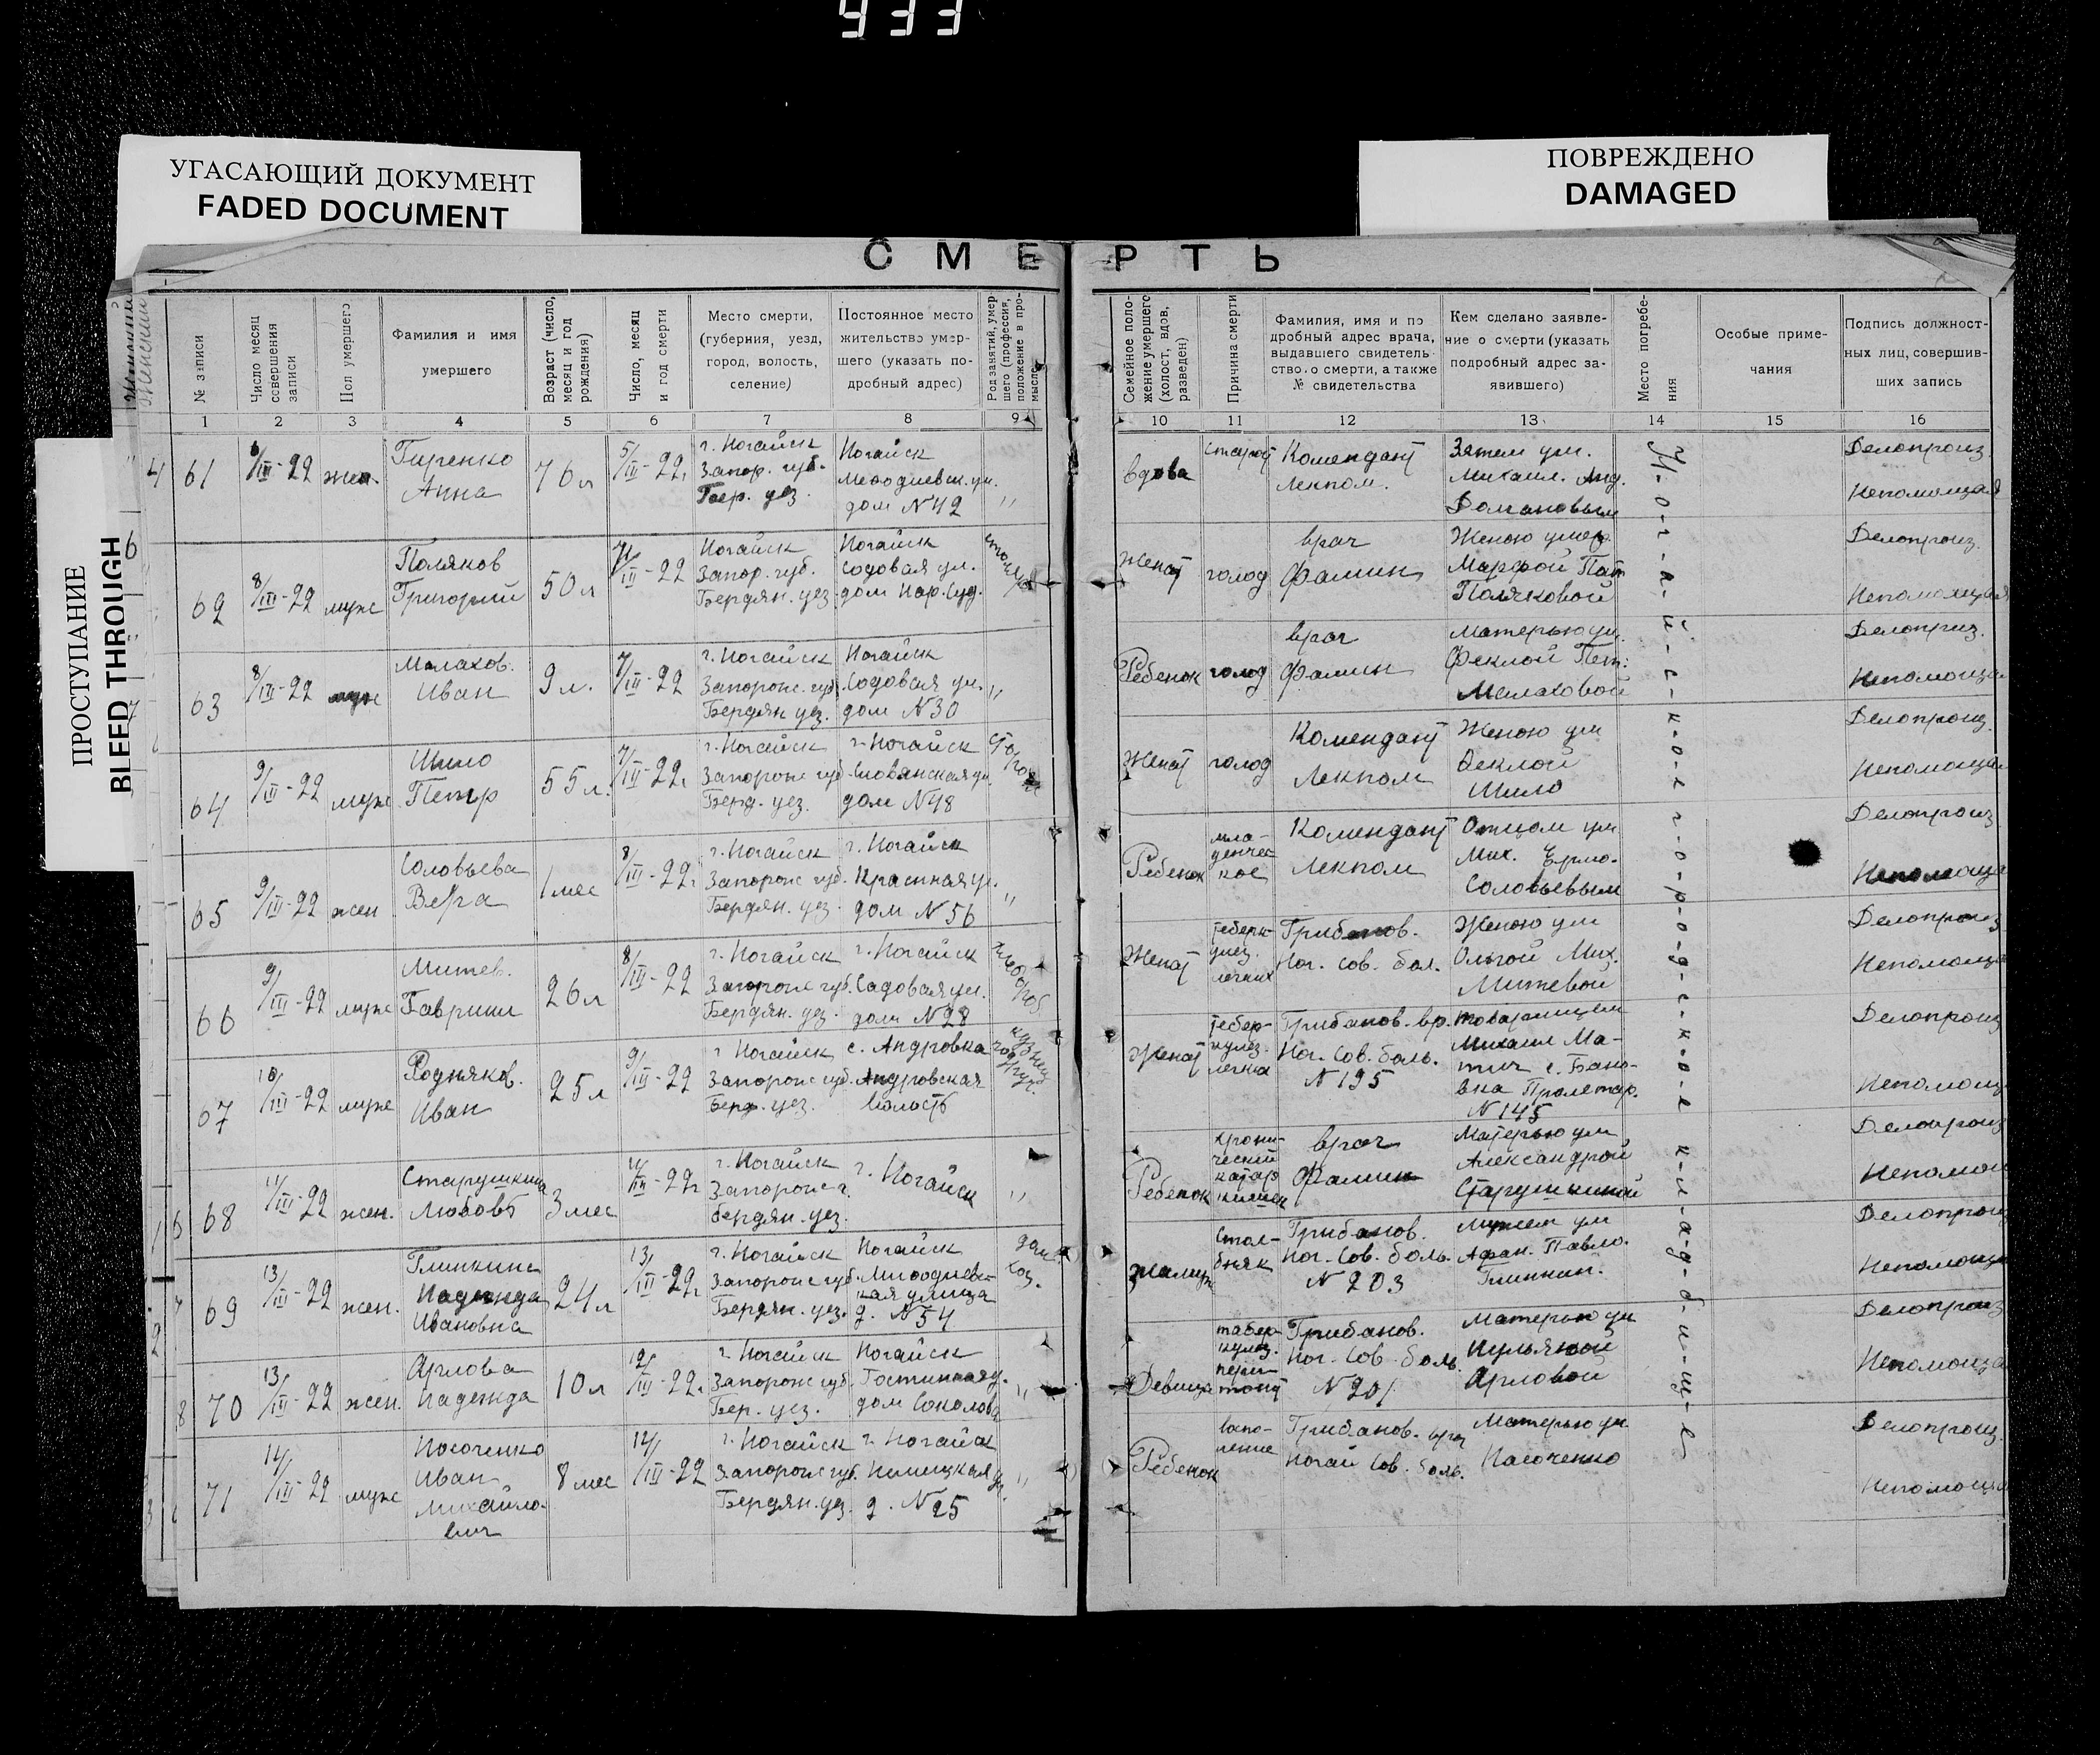 933
УГАСАЮЩИЙ ДОКУМЕНТ
FADED DOCUMENT
ПОВРЕЖДЕНО
DAMAGED
ПРОСТУПАНИЕ
BLEED THROUGH
СМЕРТЬ
№ записи
Число месяц совершения записи
Пол умершего
Фамилия и имя умершего
Возраст (число, месяц и год рождения)
Число, месяц и год смерти
Место смерти, (губерния, уезд, город, волость, селение)
Постоянное место жительство умершего (указать подробный адрес)
Род занятий, умершего (профессия, положение в промысле
Семейное положение умершего (холост, вдов, разведен)
Причина смерти
Фамилия, имя и подробный адрес врача, выдавшего свидетельство о смерти, а также № свидетельства
Кем сделано заявление о смерти (указать подробный адрес заявившего)
Место погребения
Особые примечания
Подпись должностных лиц, совершивших запись
1 2 3 4 5 6 7 8 9 10 11 12 13 14 15 16
61 /III-22 жен. Гиренко Анна 76 л 5/III-22г. г. Ногайск Запор. губ. Бер. уез. Ногайск ул. дом N 42 "
вдова Комендант Лекпом. Зятем ум. Михаил. Анд. Домановым Делопроиз.
62 8/III-22 муж Поляков Григорий 50 л 7/III-22 Ногайск Запор. губ. Бердян. уез. Ногайск Содовая ул. дом Нар. Суд.
Женат голод врач Фамин Женою умер. Марфой Поляковой Делопроиз.
63 8/III-22 муж Малахов. Иван 9 л. 7/III-22 г. Ногайск Запорож. губ. Бердян уез. Ногайск Содовая ул. дом N 30 "
Ребенок голод врач Фамин Матерью ум. Феклой Пет. Малаховой Делопроиз.
64 9/III-22 муж Шило Петр 55 л. 7/III-22г г. Ногайск Запорож губ. Берд. уез. г. Ногайск Словянская ул. дом N 48
Женат голод Комендант Лекпом Женою ум Феклой Шило Делопроиз.
65 9/III-22 жен Соловьева Вера 1 мес 8/III-22г. г. Ногайск Запорож губ. Бердян. уез. г. Ногайск Красная ул. дом N 56 "
Ребенок младенческое Комендант Лекпом Отцом ум Мих. Ермо. Соловьевым Делопроиз
66 9/III-22 муж Митев. Гавриил 26 л 8/III-22 г. Ногайск Запорож губ. Бердян. уез. г. Ногайск Садовая ул. дом N 28 хлебороб
Женат легких Грибанов. Ног. Сов. бол. Женою ум Ольгой Мих. Митевой Делопроиз
67 10/III-22 муж Родняков. Иван 25 л 9/III-22 г Ногайск Запорож губ. Берд. уез. с. Андровка Андровская волость
Женат Грибанов. вр. Ног. Сов. боль. N 195 товарищем Михаил с. Бановка Пролетар. N 145 Делопроиз
68 11/III-22 жен. Старушкина Любовь 3 мес /III-22г г. Ногайск Бердян. уез. г. Ногайск "
Ребенок хронический катар кишек врач Фамин Матерью ум Александрой Старушкиной Делопроиз
69 13/III-22 жен. Глинкина Надежда Ивановна 24 л 13/III-22г г. Ногайск Запорож губ. Бердян. уез. Ногайск улица д. N 54 дом. хоз.
Замужн столбняк Грибанов. Ног. Сов. боль. N 203 Мужем ум Афан. Павло. Глинкин. Делопроиз
70 13/III-22 жен. Арлова Надежда 10 л 12/III-22г. г Ногайск Запорож губ. Бер. уез. Ногайск Гостинная у. дом Соколова "
Девица Грибанов. Ног. Сов. боль. N 201 Матерью ум Арловой Делопроиз
71 14/III-22 муж Носоченко Иван Михайлович 8 мес 12/III-22 г. Ногайск Запорож губ. Бердян. уез. г. Ногайск д. N 25 "
Ребенок Грибанов. врач Ногай Сов. боль. Матерью ум. Носоченко Делопроиз.
Н-о-г-а-й-с-к-о-е г-о-р-о-д-с-к-о-е к-л-а-д-б-и-щ-е